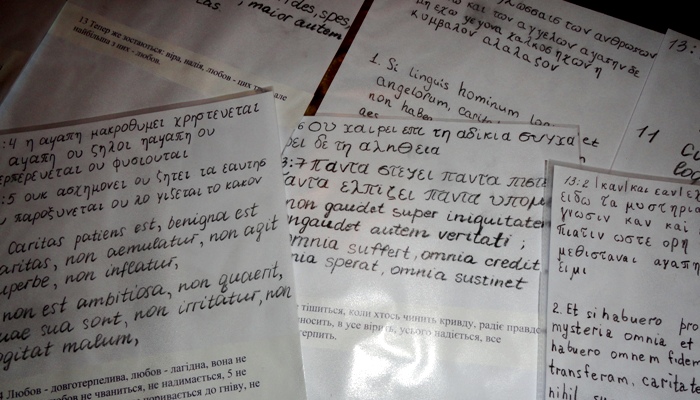 ides, spes,
tas, maior autem
13 Тепер же зостаються: віра, надія, любов - цих
найбільша з них - любов.
γλωσσαις των ανθρωπων
και των αγγελων αγαπην δε
μη εχω γεγονα χαλκος ηχων η
κυμβαλον αλαλαζον
1. Si linguis hominum lo
angelorum, carit
non habe
aes
et
13:
11
:4 η αγαπη μακροθυμει χρηστευεται
αγαπη ου ζηλοι η αγαπη ου
ερπερευεται ου φυσιουται
:5 ουκ ασχημονει ου ζητει τα εαυτης
υ παροξυνεται ου λογιζεται το κακον
Caritas patiens est, benigna est
aritas, non aemulatur, non agit
uperbe, non inflatur,
non est ambitiosa, non quaerit,
uae sua sunt, non irritatur, non
ogitat malum,
4 Любов - довготерпелива, любов - лагідна, вона не
любов не чваниться, не надимається, 5 не
поривається до гніву, не
6 ου χαιρει επι τη αδικια συγχα
ρει δε τη αληθεια
3:7 παντα στεγει παντα πιστε
παντα ελπιζει παντα υπομ
non gaudet super iniquitate
ngaudet autem veritati;
omnia suffert, omnia credit,
nia sperat, omnia sustinet
тішиться, коли хтось чинить кривду, радіє правдо
носить, в усе вірить, усього надіється, все
ерпить.
13:2 | και και εαν εχ
ειδω τα μυστηρι
γνωσιν καν και
πιστιν ωστε ορη
μεθισταναι αγαπη
ειμι
2. Et si habuero pro
mysteria omnia et
habuero omnem fidem
transferam, caritate
nihil su